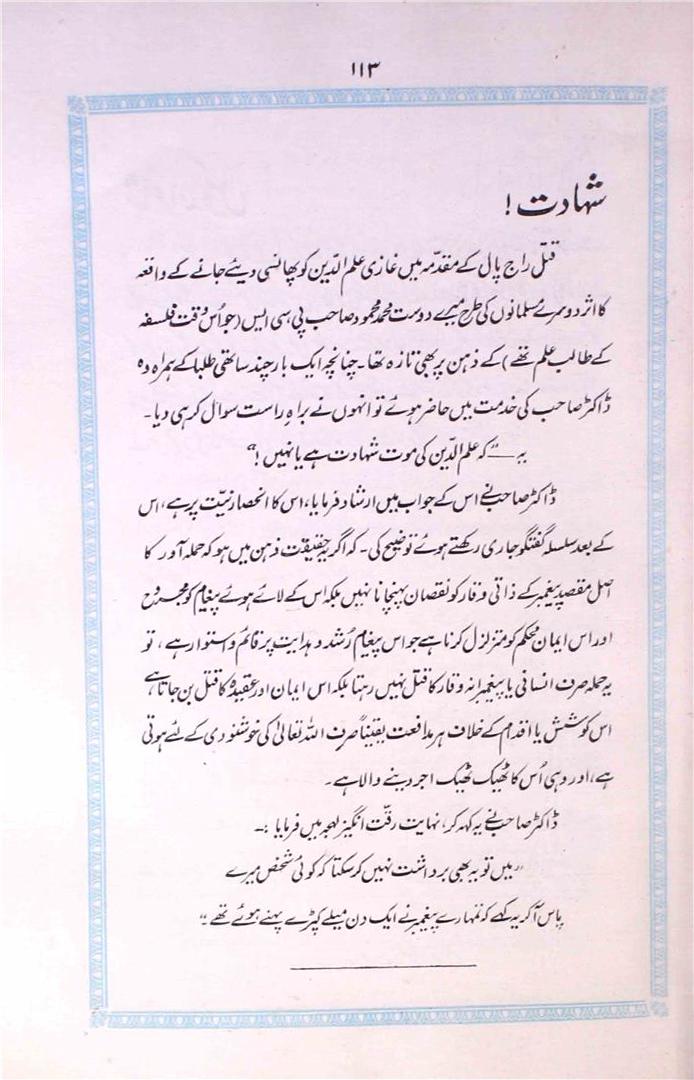 ۱۱۳
شہادت!
قتلِ راج پال کے مقدّمہ میں غازی علم الدّین کو پھانسی دیئے جانے کے واقعہ
کا اثر دوسرے مسلمانوں کی طرح میرے دوست محمد محمود صاحب پی سی ایس (جو اُس وقت فلسفہ
کے طالب علم تھے) کے ذہن پر بھی تازہ تھا۔ چنانچہ ایک بار چند ساتھی طلبا کے ہمراہ وہ
ڈاکٹر صاحب کی خدمت میں حاضر ہوئے تو انہوں نے براہِ راست سوال کر ہی دیا۔
یہ — "کہ علم الدّین کی موت شہادت ہے یا نہیں!"
ڈاکٹر صاحب نے اس کے جواب میں ارشاد فرمایا، اس کا انحصار نیّت پر ہے، اس
کے بعد سلسلہ گفتگو جاری رکھتے ہوئے توضیح کی۔ کہ اگر یہ حقیقت ذہن میں ہو کہ حملہ آور کا
اصل مقصد پیغمبر کے ذاتی وقار کو نقصان پہنچانا نہیں بلکہ اس کے لائے ہوئے پیغام کو مجروح
اور اس ایمان محکم کو متزلزل کرنا ہے جو اس پیغام رُشد و ہدایت پر قائم و استوار ہے، تو
یہ حملہ صرف انسانی یا پیغمبرانہ وقار کا قتل نہیں رہتا بلکہ اس ایمان اور عقیدہ کا قتل بن جاتا ہے،
اس کوشش یا اقدام کے خلاف ہر مدافعت یقیناً صرف اللہ تعالیٰ کی خوشنودی کے لئے ہوتی
ہے، اور وہی اُس کا ٹھیک ٹھیک اجر دینے والا ہے۔
ڈاکٹر صاحب نے یہ کہہ کر، نہایت رقّت انگیز لہجہ میں فرمایا :۔
"میں تو یہ بھی برداشت نہیں کر سکتا کہ کوئی شخص میرے
پاس آ کر یہ کہے کہ تمہارے پیغمبر نے ایک دن میلے کپڑے پہنے ہوئے تھے۔"